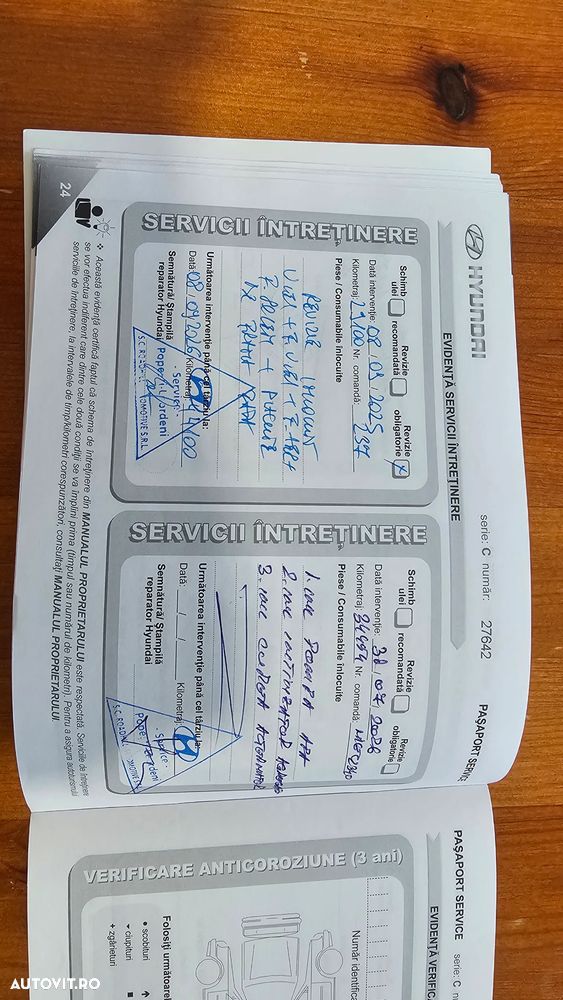 HYUNDAI
PAȘAPORT SERVICE
EVIDENȚĂ SERVICII ÎNTREȚINERE
serie: C număr: 27642
SERVICII ÎNTREȚINERE
Schimb ulei
Revizie recomandată
Revizie obligatorie x
Data intervenție: 08.09.2025
Kilometraj: 29100 Nr. comandă: 237
Piese / Consumabile înlocuite
REVIZIE
ULEI + F. ULEI +
Următoarea intervenție până cel târziu la:
Dată 08.09.2026 Kilometraj:
Semnătură/ Ștampilă
reparator Hyundai
Service
Popești Leordeni
SERVICII ÎNTREȚINERE
Schimb ulei
Revizie recomandată
Revizie obligatorie
Data intervenție:
Kilometraj: 34454 Nr. comandă:
Piese / Consumabile înlocuite
1. INL POMPA APA
2. INL
3. INL CUREA ALTERNATOR
Următoarea intervenție până cel târziu la:
Dată: / / Kilometraj:
Semnătură/ Ștampilă
reparator Hyundai
Service
❖ Această evidență certifică faptul că schema de întreținere din MANUALUL PROPRIETARULUI este respectată. Serviciile de întreținere
se vor efectua indiferent care dintre cele două condiții se va împlini prima (timpul sau numărul de kilometri). Pentru a asigura autoturismului
serviciile de întreținere, la intervalele de timp/kilometri corespunzători, consultați MANUALUL PROPRIETARULUI.
24
PAȘAPORT SERVICE
serie: C
EVIDENȚĂ
VERIFICARE ANTICOROZIUNE (3 ani)
Număr
Folosiți
• scobituri
ciupituri
+ zgârieturi
AUTOVIT.RO